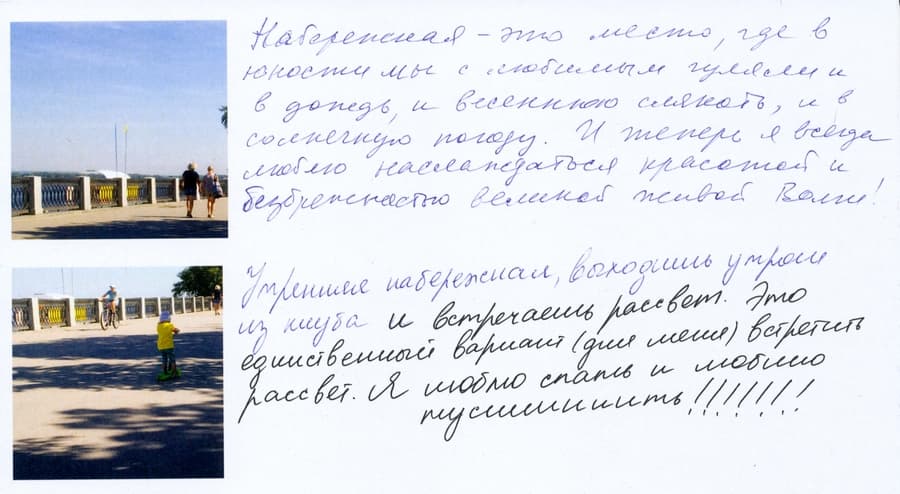 Набережная – это место, где в
юности мы с любимым гуляли и
в дождь, и весеннюю слякоть, и в
солнечную погоду. И теперь я всегда
люблю наслаждаться красотой и
безбрежностью великой живой Волги!
Утренняя набережная, выходишь утром
из клуба и встречаешь рассвет. Это
единственный вариант (для меня) встретить
рассвет. Я люблю спать и люблю
тусииииить!!!!!!!!